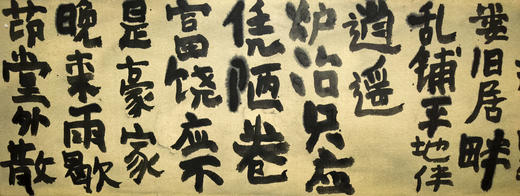 旧居畔
乱铺平地伴
逍遥
炉冶只应
凭陋巷
富饶应不
是豪家
晚来雨歇
茆堂外散